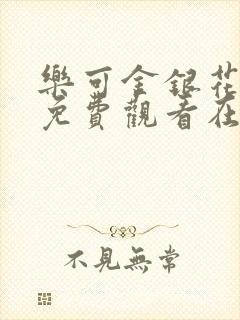 樂可金銀花
免費觀看在
不見無常